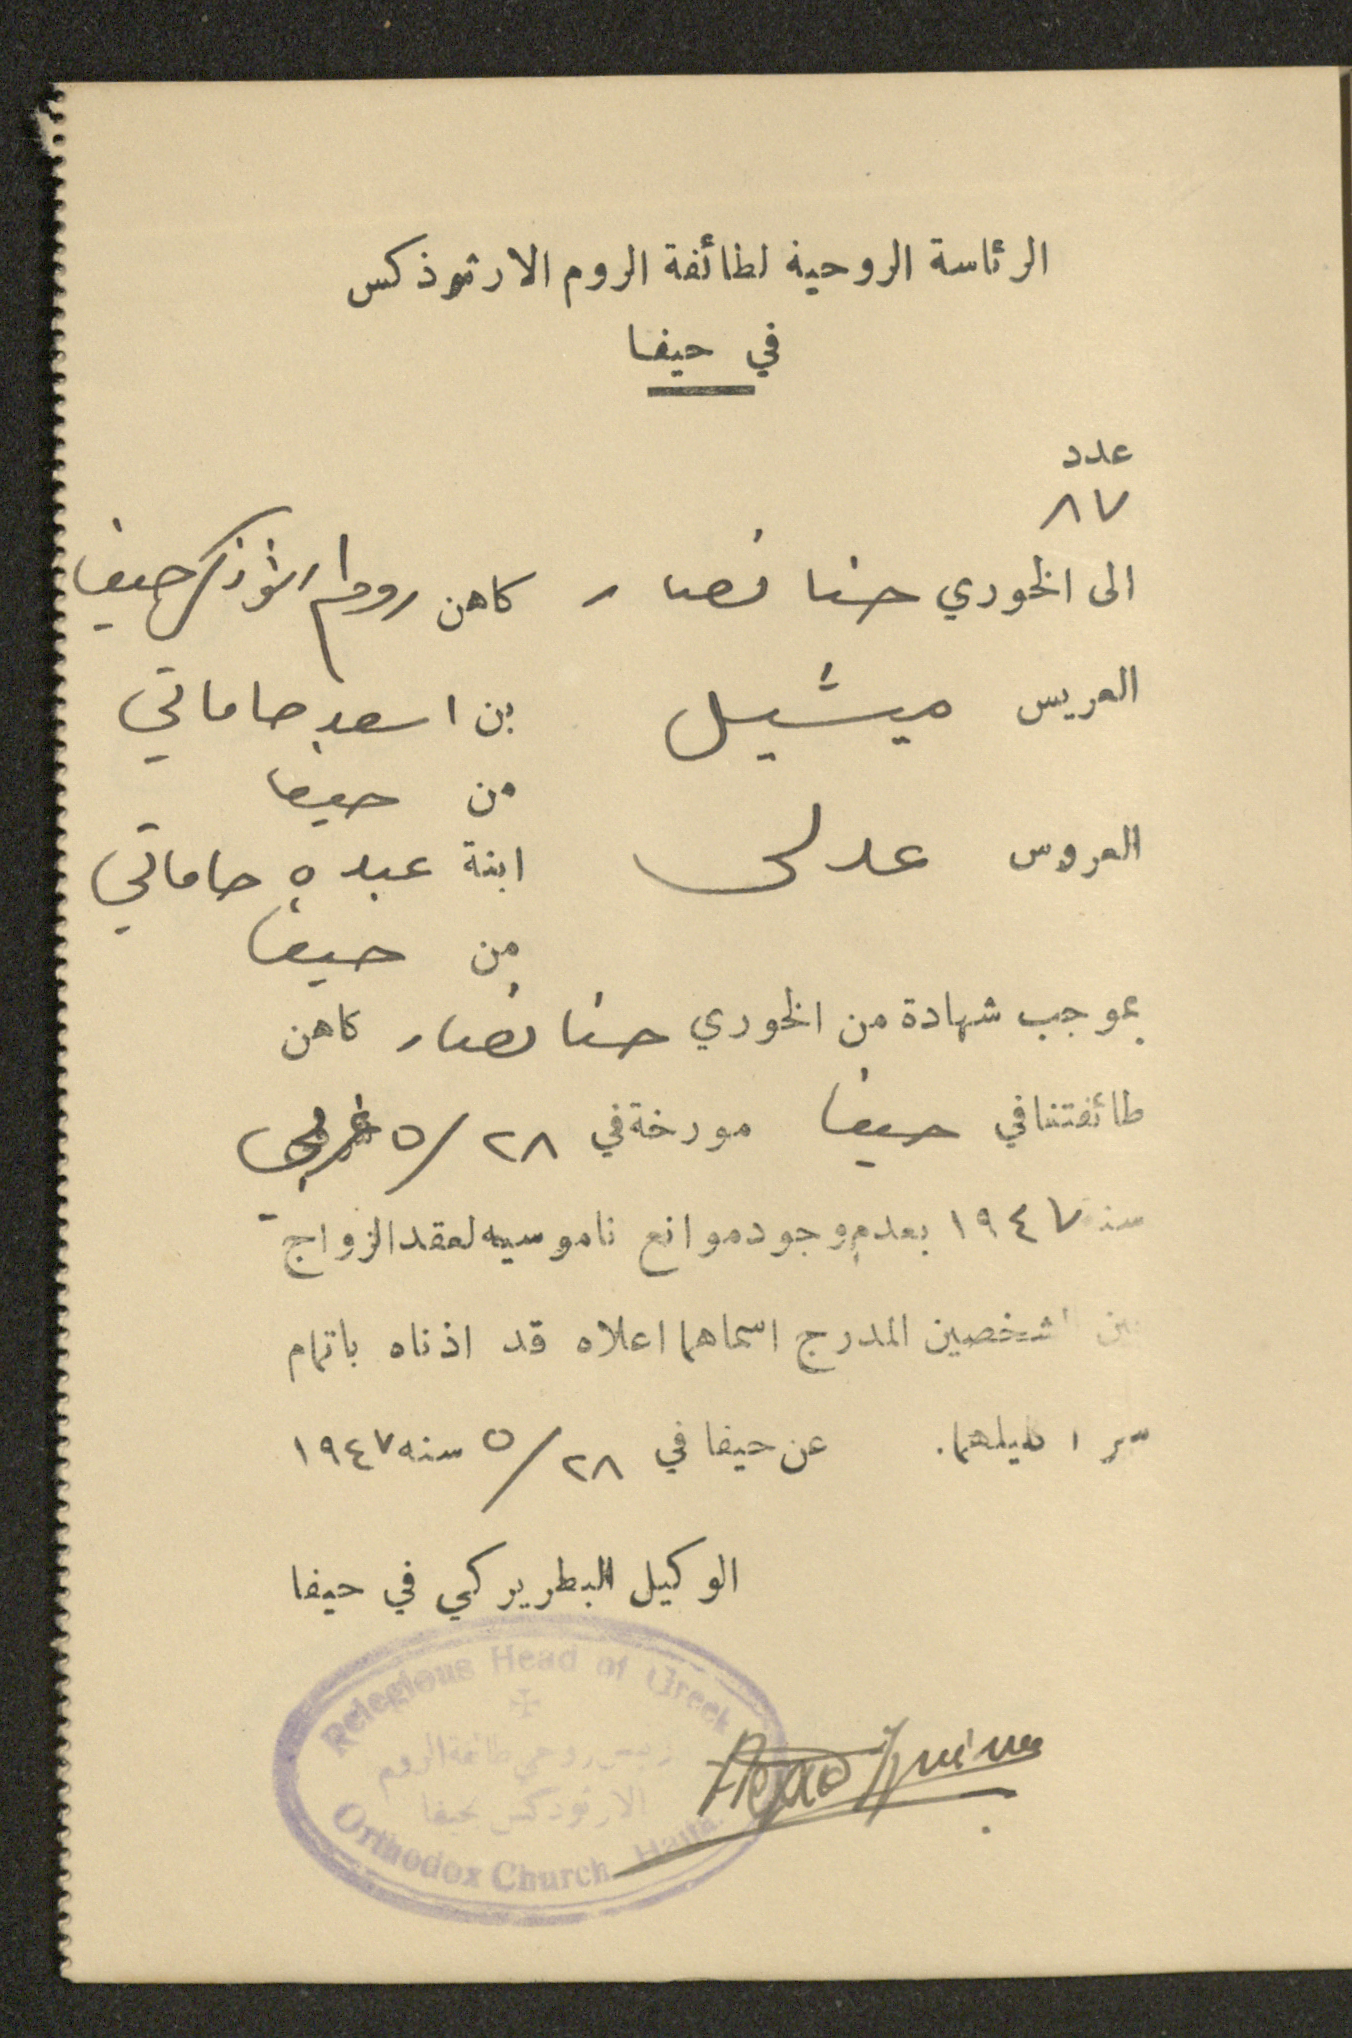 الرئاسة الروحية لطائفة الروم الارثوذكس
في حيفا
عدد
٨٧
الى الخوري حنا نصار كاهن روم ارثوذكس حيفا
العريس ميشيل بن اسعد حاماتي
من حيفا
العروس عدلى ابنة عبده حاماتي
من حيفا
بموجب شهادة من الخوري حنا نصار كاهن
طائفتنا في حيفا مورخة في ٢٨/٥ غربي
سنة ١٩٤٧ بعدم وجود موانع ناموسيه لعقد الزواج
بين الشخصين المدرج اسماهما اعلاه قد اذناه باتمام
سر اكليلهما. عن حيفا في ٢٨/٥ سنه ١٩٤٧
الوكيل البطريركي في حيفا
Relegious Head of Greek
رئيس روحي طائفة الروم
الارثوذكس بحيفا
Orthodox Church Haifa.